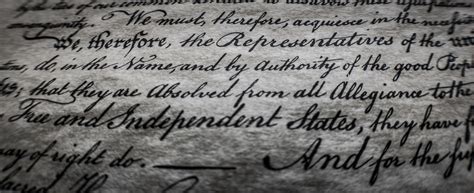 our common
consanguinity. We must, therefore, acquiesce in the necess
We, therefore, the Representatives of the un
do, in the Name, and by Authority of the good Peopl
s; that they are Absolved from all Allegiance to the
Free and Independent States, they have f
ay of right do. — And for the